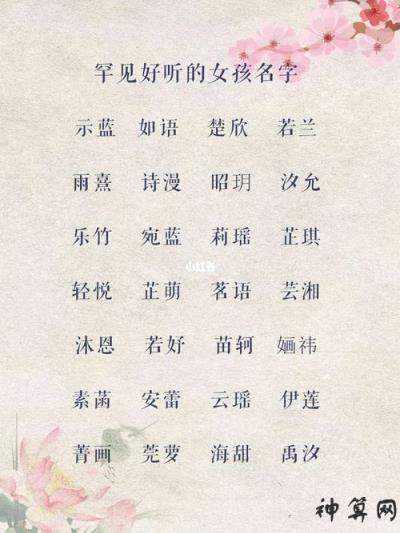 罕见好听的女孩名字
示蓝 如语 楚欣 若兰
雨熹 诗漫 昭玥 汐允
乐竹 宛蓝 莉瑶 芷琪
小红书
轻悦 芷萌 茗语 芸湘
沐恩 若妤 苗轲 婳祎
素菡 安蕾 云瑶 伊莲
菁画 莞萝 海甜 禹汐
神算网